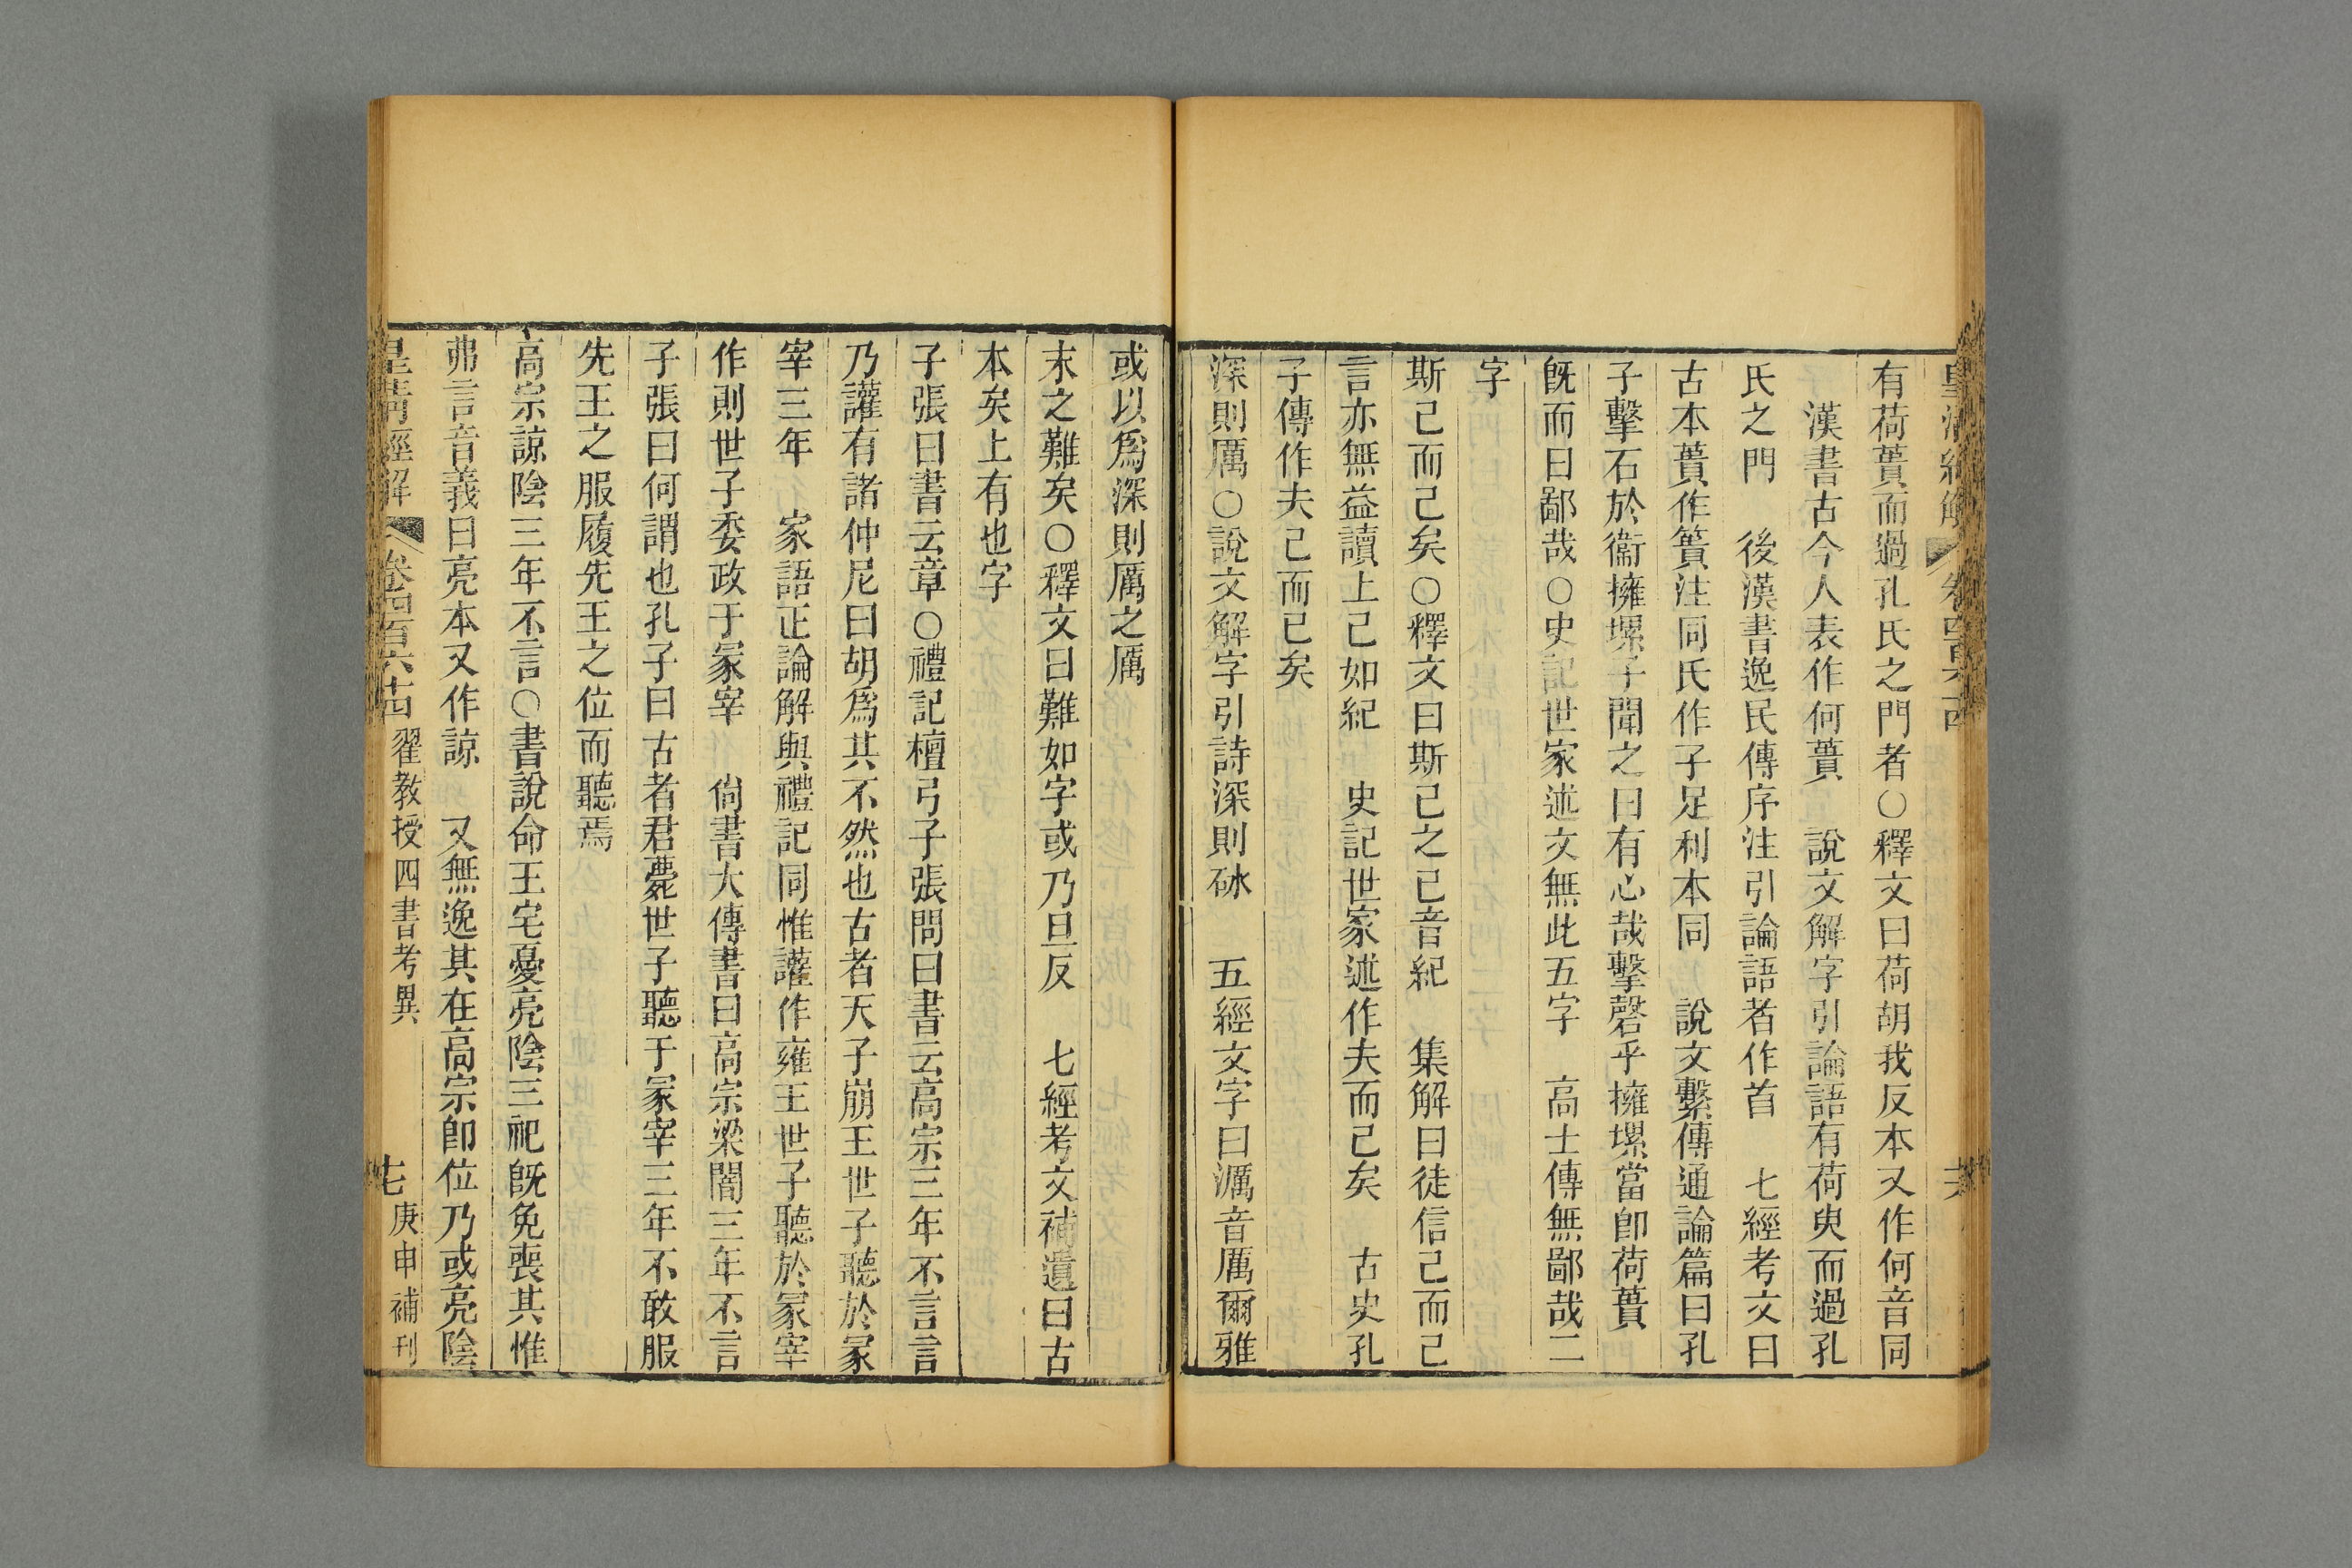 皇清經解 卷四百六十四 十六
有荷蕢而過孔氏之門者○釋文曰荷胡我反本又作何音同
漢書古今人表作何蕢 說文解字引論語有荷臾而過孔
氏之門 後漢書逸民傳序注引論語者作首 七經考文曰
古本蕢作簣注同氏作子足利本同 說文繫傳通論篇曰孔
子擊石於衞擁墿子聞之曰有心哉擊磬乎擁墿當卽荷蕢
旣而曰鄙哉○史記世家述文無此五字 高士傳無鄙哉二
字
斯己而已矣○釋文曰斯己之已音紀 集解曰徒信己而已
言亦無益讀上己如紀 史記世家述作夫而已矣 古史孔
子傳作夫己而已矣
深則厲○說文解字引詩深則砅 五經文字曰濿音厲爾雅
或以爲深則厲之厲
末之難矣○釋文曰難如字或乃旦反 七經考文補遺曰古
本矣上有也字
子張曰書云章○禮記檀弓子張問曰書云高宗三年不言言
乃讙有諸仲尼曰胡爲其不然也古者天子崩王世子聽於冢
宰三年 家語正論解與禮記同惟讙作雍王世子聽於冢宰
作則世子委政于冢宰 尙書大傳書曰高宗梁闇三年不言
子張曰何謂也孔子曰古者君薨世子聽于冢宰三年不敢服
先王之服履先王之位而聽焉
高宗諒陰三年不言○書說命王宅憂亮陰三祀旣免喪其惟
弗言音義曰亮本又作諒 又無逸其在高宗卽位乃或亮陰
皇清經解 卷四百六十四 翟教授四書考異 七 庚申補刊